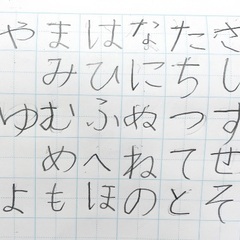 さしすせそ
たちつてと
なにぬねの
はひふへほ
まみむめも
やゆよ